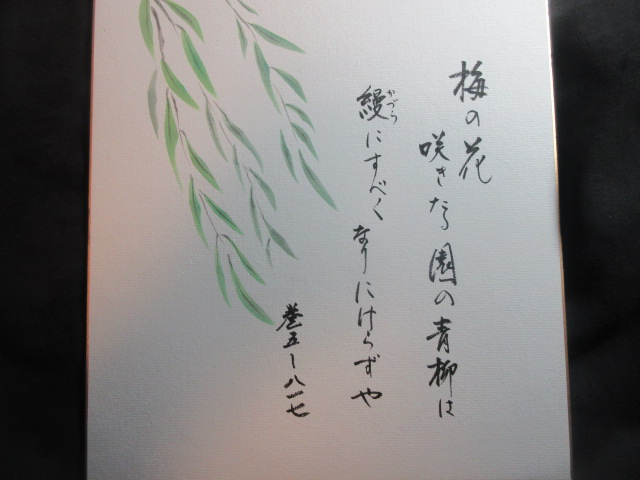 梅の花
咲きたる園の青柳は
縵にすべく
かづら
なりにけらずや
巻五ー八一七